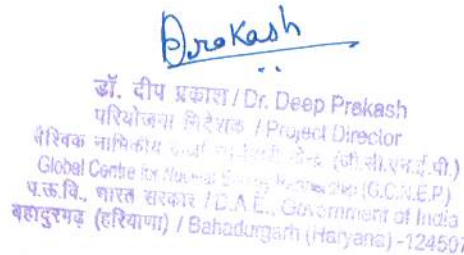 Prakash
डॉ. दीप प्रकाश / Dr. Deep Prakash
परियोजना निदेशक / Project Director
वैश्विक नाभिकीय ऊर्जा केन्द्र (जी.सी.एन.ई.पी.)
Global Centre for Nuclear Energy Partnership (G.C.N.E.P.)
प.ऊ.वि., भारत सरकार / D.A.E., Government of India
बहादुरगढ़ (हरियाणा) / Bahadurgarh (Haryana) -124507